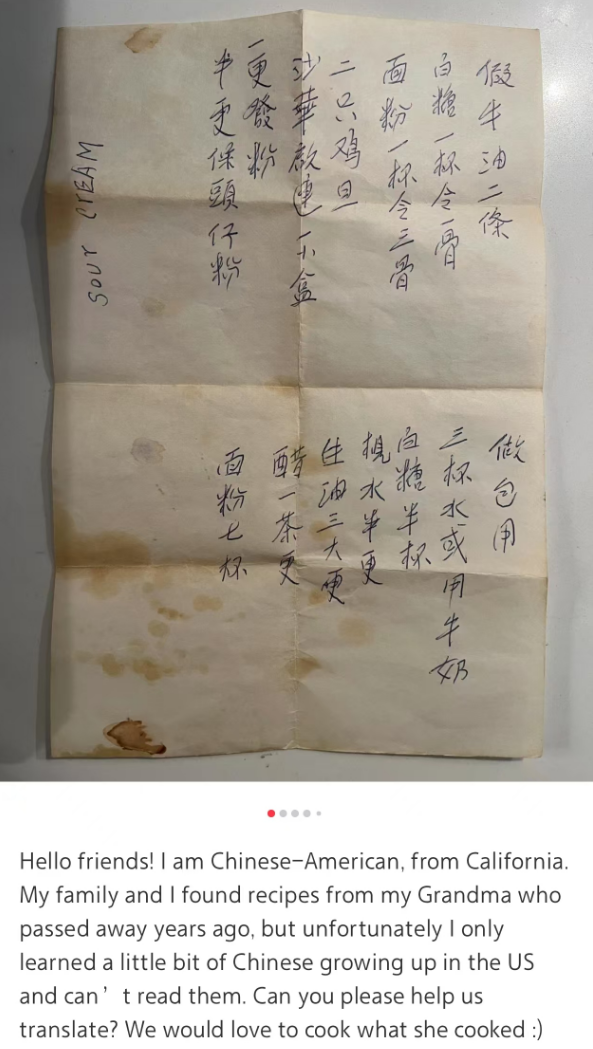 假牛油二條
白糖一杯令一骨
面粉一杯令三骨
二只鸡旦
沙華啟連一小盒
一更發粉
半更保頭仔粉
SOUr CrEAM
做包用
三杯水或用牛奶
白糖半杯
梘水半更
生油三大更
醋一茶更
面粉七杯
Hello friends! I am Chinese-American, from California.
My family and I found recipes from my Grandma who
passed away years ago, but unfortunately I only
learned a little bit of Chinese growing up in the US
and can't read them. Can you please help us
translate? We would love to cook what she cooked :)